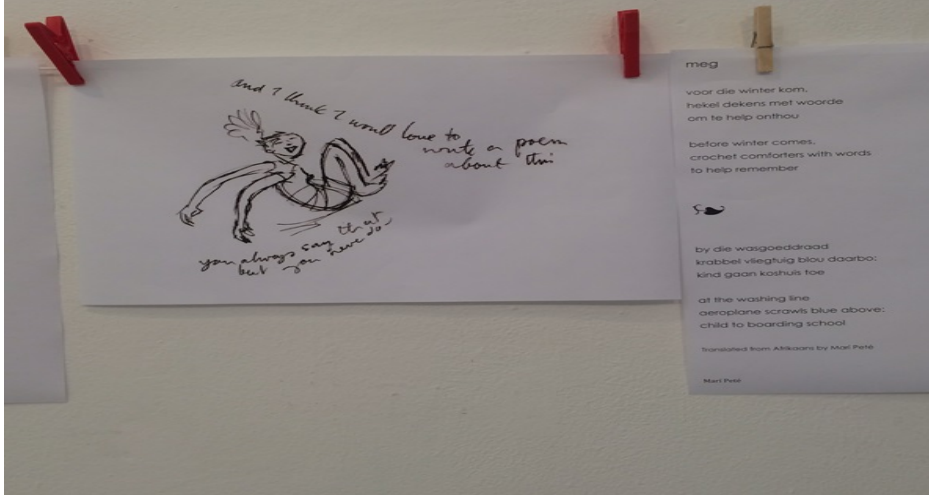 and I think I would love to
write a poem
about this
you always say that
but you never do
meg
voor die winter kom,
hekel dekens met woorde
om te help onthou
before winter comes,
crochet comforters with words
to help remember
by die wasgoeddraad
krabbel vliegtuig blou daarbo:
kind gaan koshuis toe
at the washing line
aeroplane scrawls blue above:
child to boarding school
Translated from Afrikaans by Mari Peté
Mari Peté